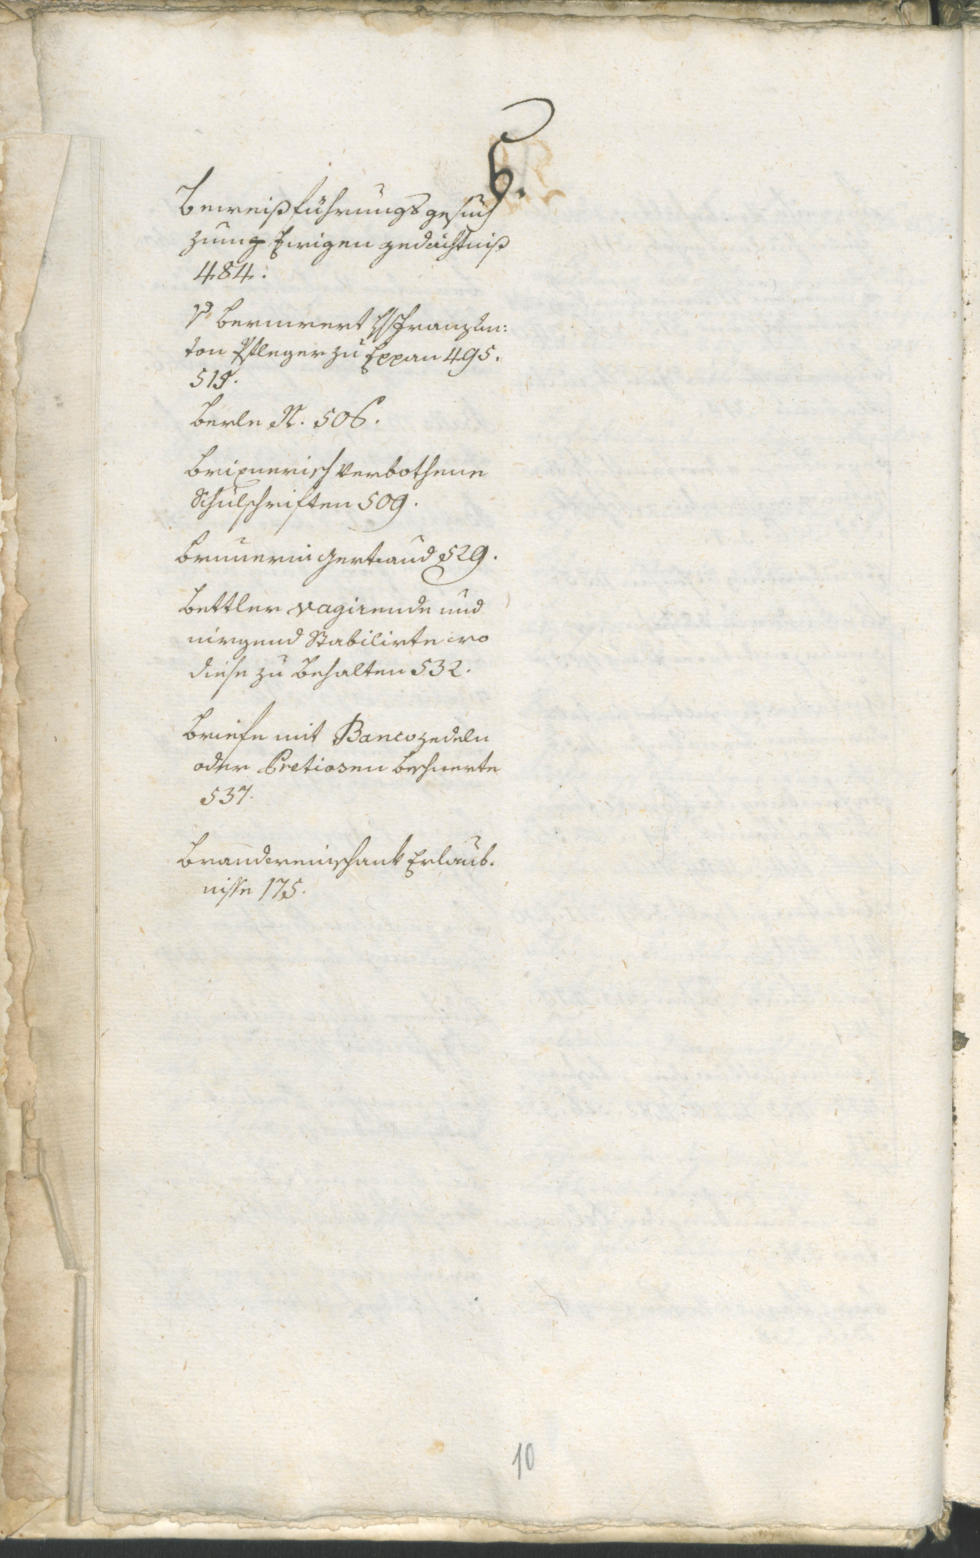 B.
Beweißführungs gesuch
zum Ewigen gedächtniß
484.
Berwert H: Franz An:
ton Pfleger zu Eppan 495.
519.
Berle N. 506.
Brixnerisch verbothene
Schulschriften 509.
Brunerin Gertraud 529.
Bettler vagirende und
nirgend Stabilirte wo
diese zu behalten 532.
Briefe mit Bancozedeln
oder Pretiosen beschwerte
537.
Brandweinschank Erlaub.
nisse 175.
10